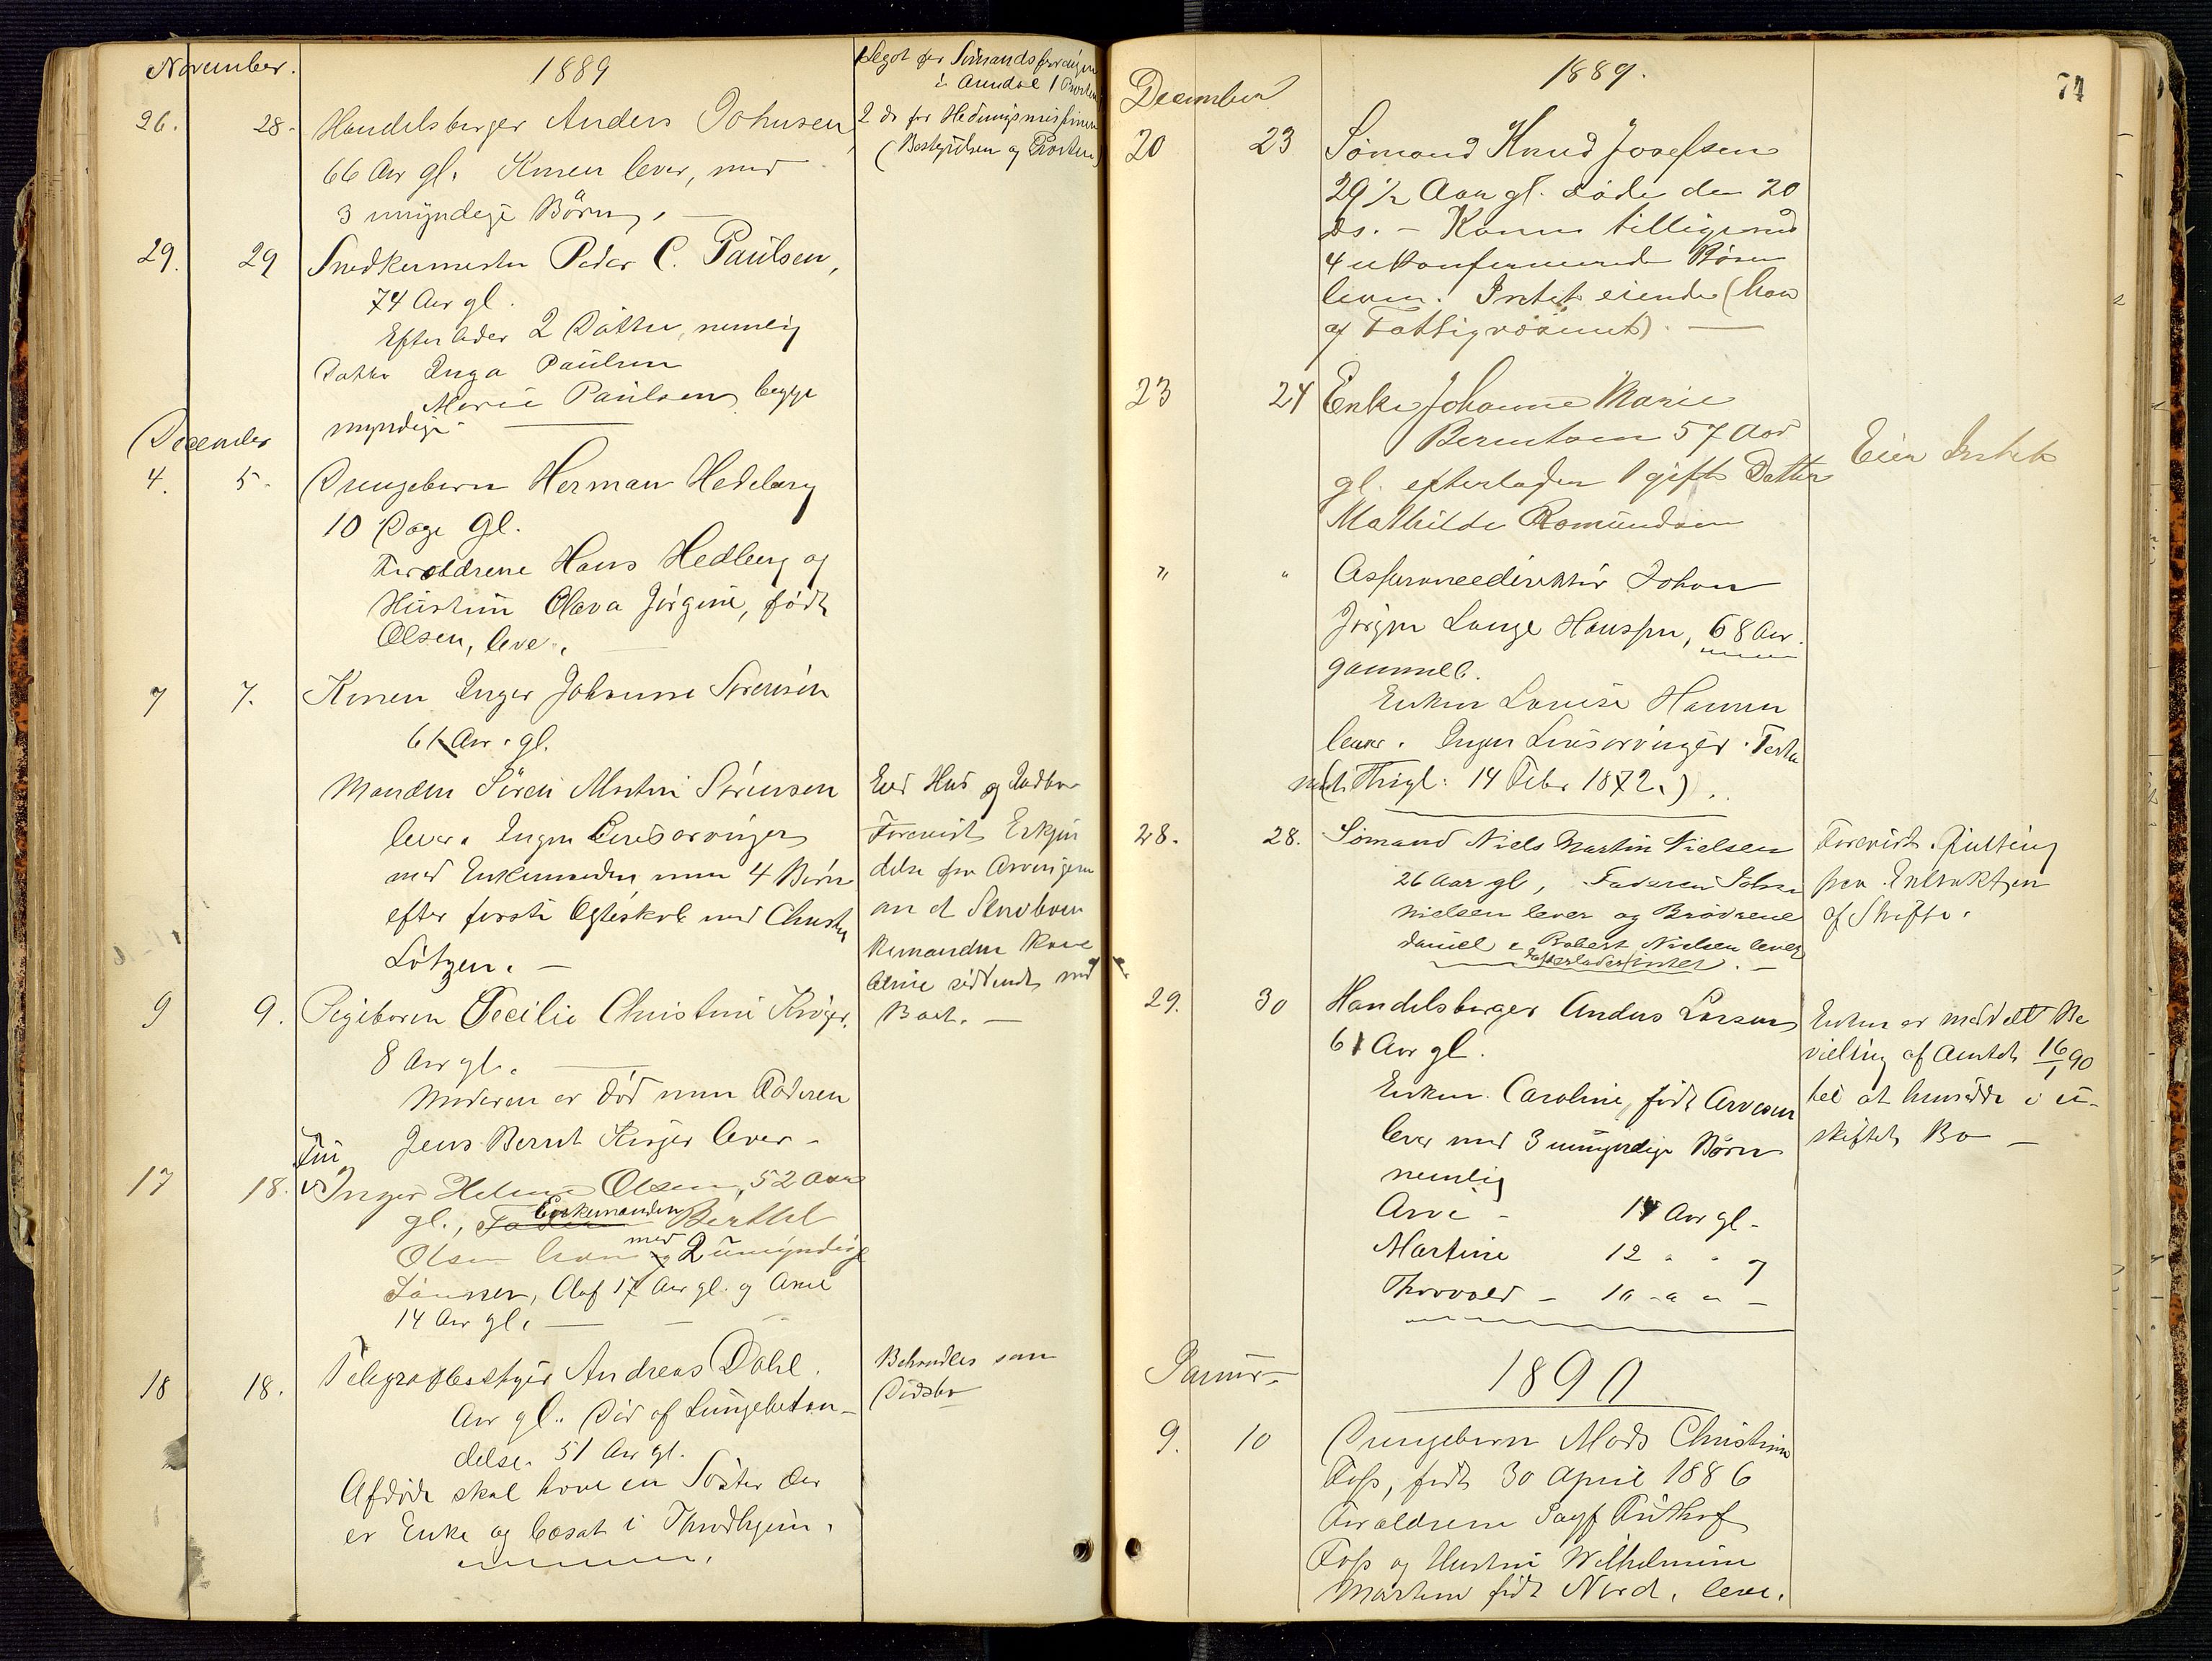 November.
1889
1 Legat for Sømandsforeningen
i Arendal / Provsten
2 do for Hedningmissionen
(Bestyrelsen og Provsten)
26. 28. Handelsborger Anders Johnsen,
66 Aar gl. Konen lever, med
3 umyndige Børn, —
29. 29 Snedkermester Peder C. Paulsen,
74 Aar gl.
Efterlader 2 Døttre, nemlig
Datter Inga Paulsen
Marie Paulsen, begge
myndige. —
December
4. 5. Drengebarn Herman Hedeberg
10 Dage gl.
Forældrene Hans Hedberg og
Hustru Olava Jørgine, født
Olsen, leve.
7 7. Konen Inger Johanne Sørensen
61 Aar gl.
Manden Søren Martin Sørensen
lever. Ingen Livsarvinger
med Enkemanden men 4 Børn
efter første Egteskab med Christen
Løtzen. —
Eied Hus og Indbo
Forevist Erkjen
delse fra Arvingerne
om at
Kemanden kan
blive siddende med
Boet. —
9 9. Pigebarn Cecilie Christine Krøger,
8 Aar gl.
Moderen er død men Faderen
Jens Bernt Krøger lever -
17 18. Inger Helene Olsen, 52 Aar
gl., Faderen Enkemanden Berthel
Olsen lever og med 2 umyndige
Sønner, Olaf 17 Aar gl. og Arne
14 Aar gl. —
18 18. Telegrafbestyrer Andreas Dahl.
Aar gl. Død af Lungebetæn-
delse. 51 Aar gl.
Afdøde skal have en Søster der
er Enke og bosat i Throdhjem.
Behandles som
Dødsbo
74
1889.
December
20 23 Sømand Knud Josefsen
29 1/2 Aar gl. døde den 20
ds. - Konen tilligemed
4 ukonfirmerede Børn
lever. Intet eiende (hav
af Fattigvæsenet). —
23 24 Enke Johanne Marie
Berntsen 57 Aar
gl. efterlader 1 gift Datter
Mathilde Romundsen
Eier Intet
" " Assurancedirektør Johan
Jørgen Lange Hanssen, 68 Aar
gammel.
Enken Louise Hansen
lever. Ingen Livsarvinger. Testa
ment (Thigl: 14 Febr 1872.).
28. 28. Sømand Niels Martin Nielsen
26 Aar gl, Faderen John
Nielsen lever og Brødrene
Daniel & Robert Nielsen lever
Efterlader intet. —
Forevist Qvittering
fra Extrakten
af Skifte.
29. 30 Handelsborger Anders Larsen
61 Aar gl.
Enken Caroline, født Arvesen
lever med 3 umyndige Børn
nemlig
Arve - 14 Aar gl -
Martine 12 " " og
Thorvald - 10 " " —
Enken er meddelt Be
villing af Amtet 16/1 90
til at hensidde i u-
skiftet Bo —
Januar
1890
9. 10 Drengebarn Mads Christian
Foss, født 30 April 1886
Forældrene Sagf Frithof
Foss og Hustru Wilhelmine
Martine født Nord, leve.